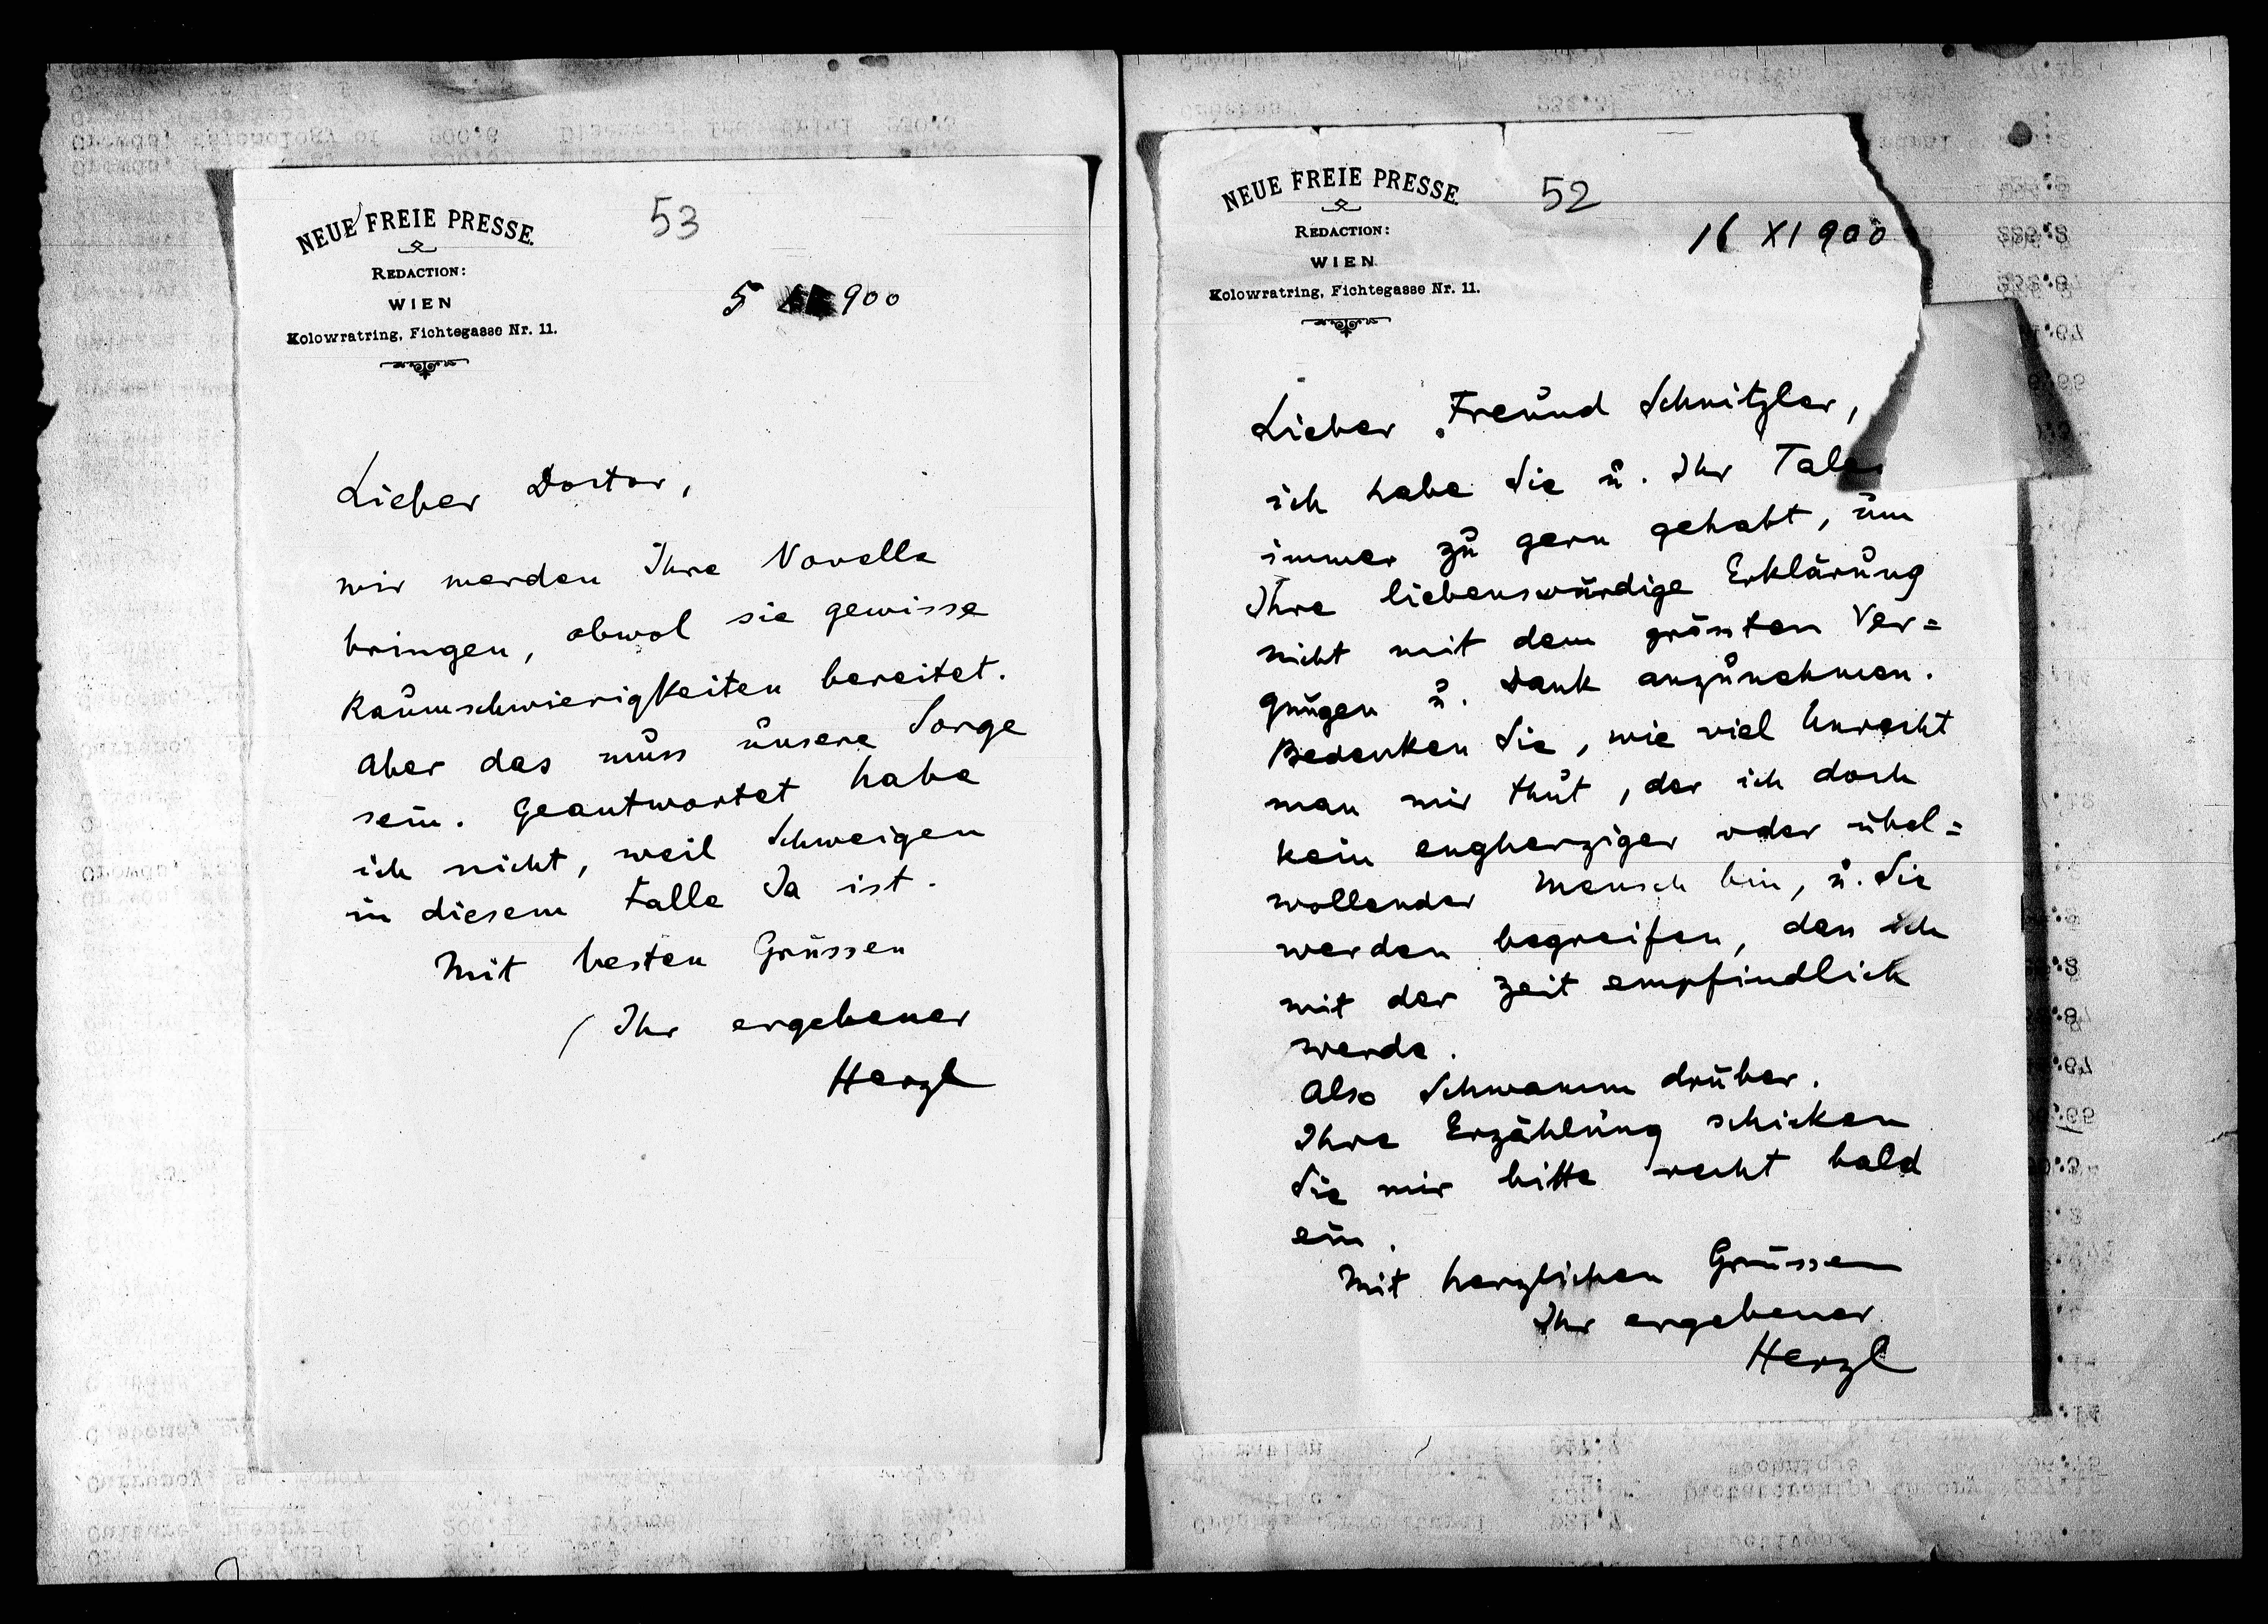 NEUE FREIE PRESSE.
53
REDACTION:
WIEN
Kolowratring, Fichtegasse Nr. 11.
5 900
Lieber Doctor,
wir werden Ihre Novelle
bringen, obwol sie gewisse
Raumschwierigkeiten bereitet.
Aber das muss unsere Sorge
sein. Geantwortet habe
ich nicht, weil Schweigen
in diesem Falle Ja ist.
Mit besten Grüssen
Ihr ergebener
Herzl
NEUE FREIE PRESSE.
52
REDACTION:
WIEN
Kolowratring, Fichtegasse Nr. 11.
16 XI 900
Lieber Freund Schnitzler,
ich habe Sie u. Ihr Tale
immer zu gern gehabt, um
Ihre liebenswürdige Erklärung
nicht mit dem grössten Ver=
gnügen u. Dank anzunehmen.
Bedenken Sie, wie viel Unrecht
man mir thut, der ich doch
kein engherziger oder übel=
wollender Mensch bin, u. Sie
werden begreifen, den ich
mit der Zeit empfindlich
werde.
Also Schwamm drüber.
Ihre Erzählung schicken
Sie mir bitte recht bald
ein.
Mit herzlichen Grüssen
Ihr ergebener
Herzl